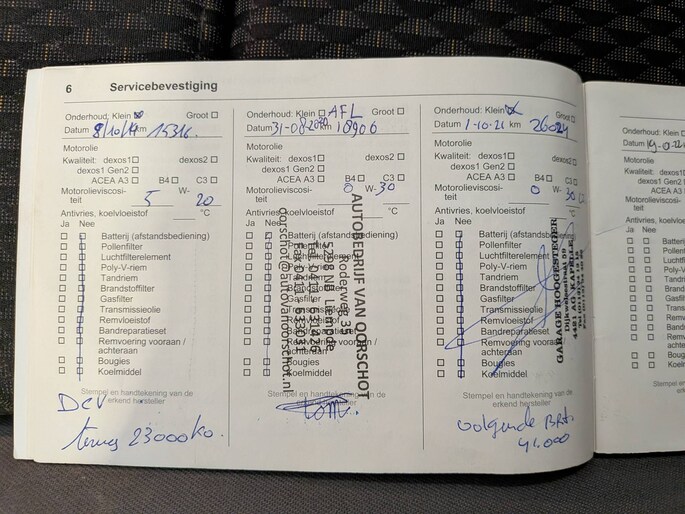 6 Servicebevestiging
Onderhoud: Klein Groot
Datum 8/10/ km 15316.
Motorolie
Kwaliteit: dexos1 dexos2
dexos1 Gen2
ACEA A3 B4 C3
Motorolieviscosi-
teit 5 W- 20
Antivries, koelvloeistof °C
Ja Nee
Batterij (afstandsbediening)
Pollenfilter
Luchtfilterelement
Poly-V-riem
Tandriem
Brandstoffilter
Gasfilter
Transmissieolie
Remvloeistof
Bandreparatieset
Remvoering vooraan /
achteraan
Bougies
Koelmiddel
Stempel en handtekening van de
erkend hersteller
23000
Onderhoud: Klein AFL Groot
Datum 31-08- km
Motorolie
Kwaliteit: dexos1 dexos2
dexos1 Gen2
ACEA A3 B4 C3
Motorolieviscosi-
teit 0 W- 30
Antivries, koelvloeistof °C
Ja Nee
Batterij (afstandsbediening)
Pollenfilter
Luchtfilterelement
Poly-V-riem
Tandriem
Brandstoffilter
Gasfilter
Transmissieolie
Remvloeistof
Bandreparatieset
Remvoering vooraan /
achteraan
Bougies
Koelmiddel
Stempel en handtekening van de
erkend hersteller
AUTOBEDRIJF VAN OORSCHOT
Roderweg 35
5298 NB Liempde
Tel. 0411 631226
oorschot@autovanoorschot.nl
Onderhoud: Klein Groot
Datum 1-10-21 km 26024
Motorolie
Kwaliteit: dexos1 dexos2
dexos1 Gen2
ACEA A3 B4 C3
Motorolieviscosi-
teit 0 W- 30
Antivries, koelvloeistof °C
Ja Nee
Batterij (afstandsbediening)
Pollenfilter
Luchtfilterelement
Poly-V-riem
Tandriem
Brandstoffilter
Gasfilter
Transmissieolie
Remvloeistof
Bandreparatieset
Remvoering vooraan /
achteraan
Bougies
Koelmiddel
Stempel en handtekening van de
erkend hersteller
GARAGE HOOGESTEGER
volgende Brt.
41.000
Onderhoud: K
Datum
Motorolie
Kwaliteit: de
dexos1 G
ACEA
Motoroliev
teit
Antivries, k
Ja Nee
Ba
Po
Lu
Po
Ta
Br
Ga
Tra
Rem
Ban
Rem
ach
Bou
Koe